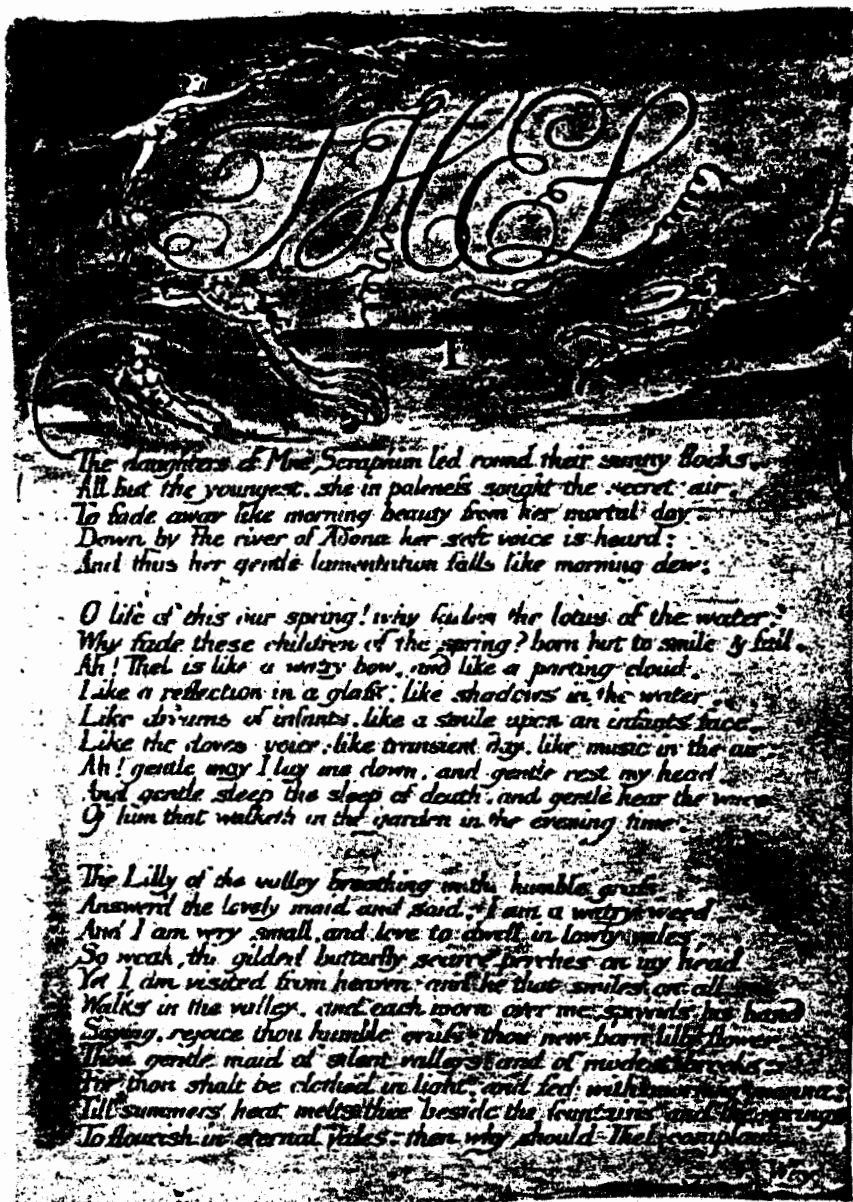 THEL
I
The daughters of Mne Seraphim led round their sunny flocks.
All but the youngest. she in paleness sought the secret air.
To fade away like morning beauty from her mortal day:
Down by the river of Adona her soft voice is heard:
And thus her gentle lamentation falls like morning dew.
O life of this our spring! why fades the lotus of the water?
Why fade these children of the spring? born but to smile & fall.
Ah! Thel is like a watry bow. and like a parting cloud.
Like a reflection in a glass. like shadows in the water.
Like dreams of infants. like a smile upon an infants face.
Like the doves voice. like transient day. like music in the air
Ah! gentle may I lay me down, and gentle rest my head.
And gentle sleep the sleep of death. and gentle hear the voice
Of him that walketh in the garden in the evening time.
The Lilly of the valley breathing in the humble grass
Answerd the lovely maid and said. I am a watry weed
And I am very small, and love to dwell in lowly vales,
So weak, the gilded butterfly scarce perches on my head
Yet I am visited from heaven and he that smiles on all
Walks in the valley. and each morn over me spreads his hand
Saying, rejoice thou humble grass, thou new-born lilly flower
Thou gentle maid of silent valleys and of modest brooks:
For thou shalt be clothed in light, and fed with morning manna:
Till summers heat melts thee beside the fountains and the springs
To flourish in eternal vales: then why should Thel complain.
Why